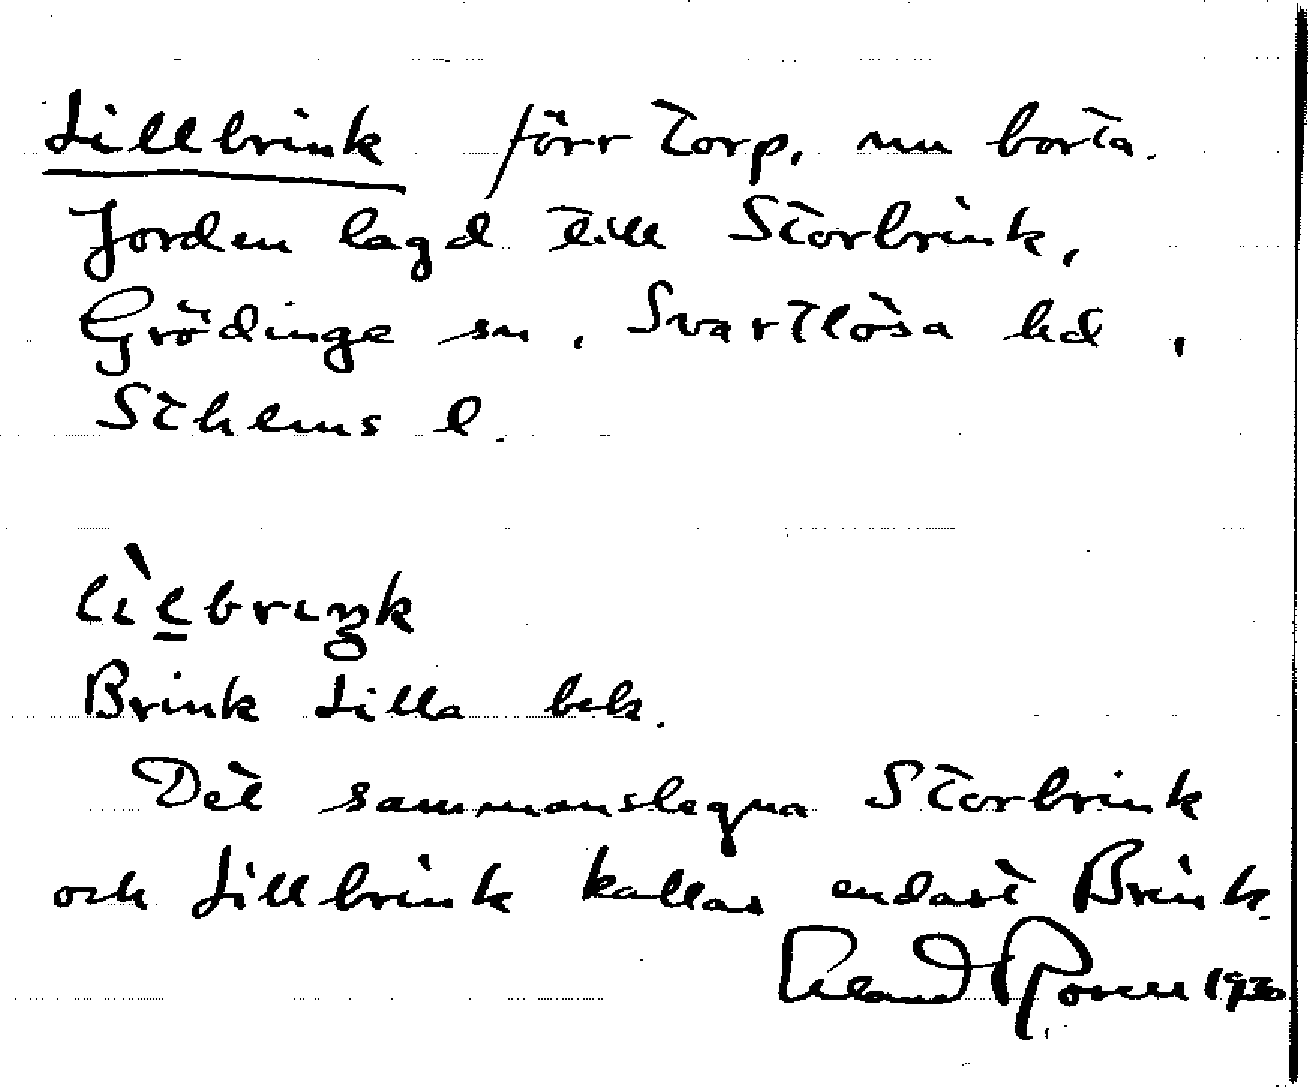 Lillbrink förr torp, nu borta.
Jorden lagd till Storbrink,
Grödinge sn, Svartlösa hd,
Sthlms l.
lìlbrıŋk
Brink Lilla bek.
Det sammanslagna Storbrink
och Lillbrink kallas endast Brink.
1930